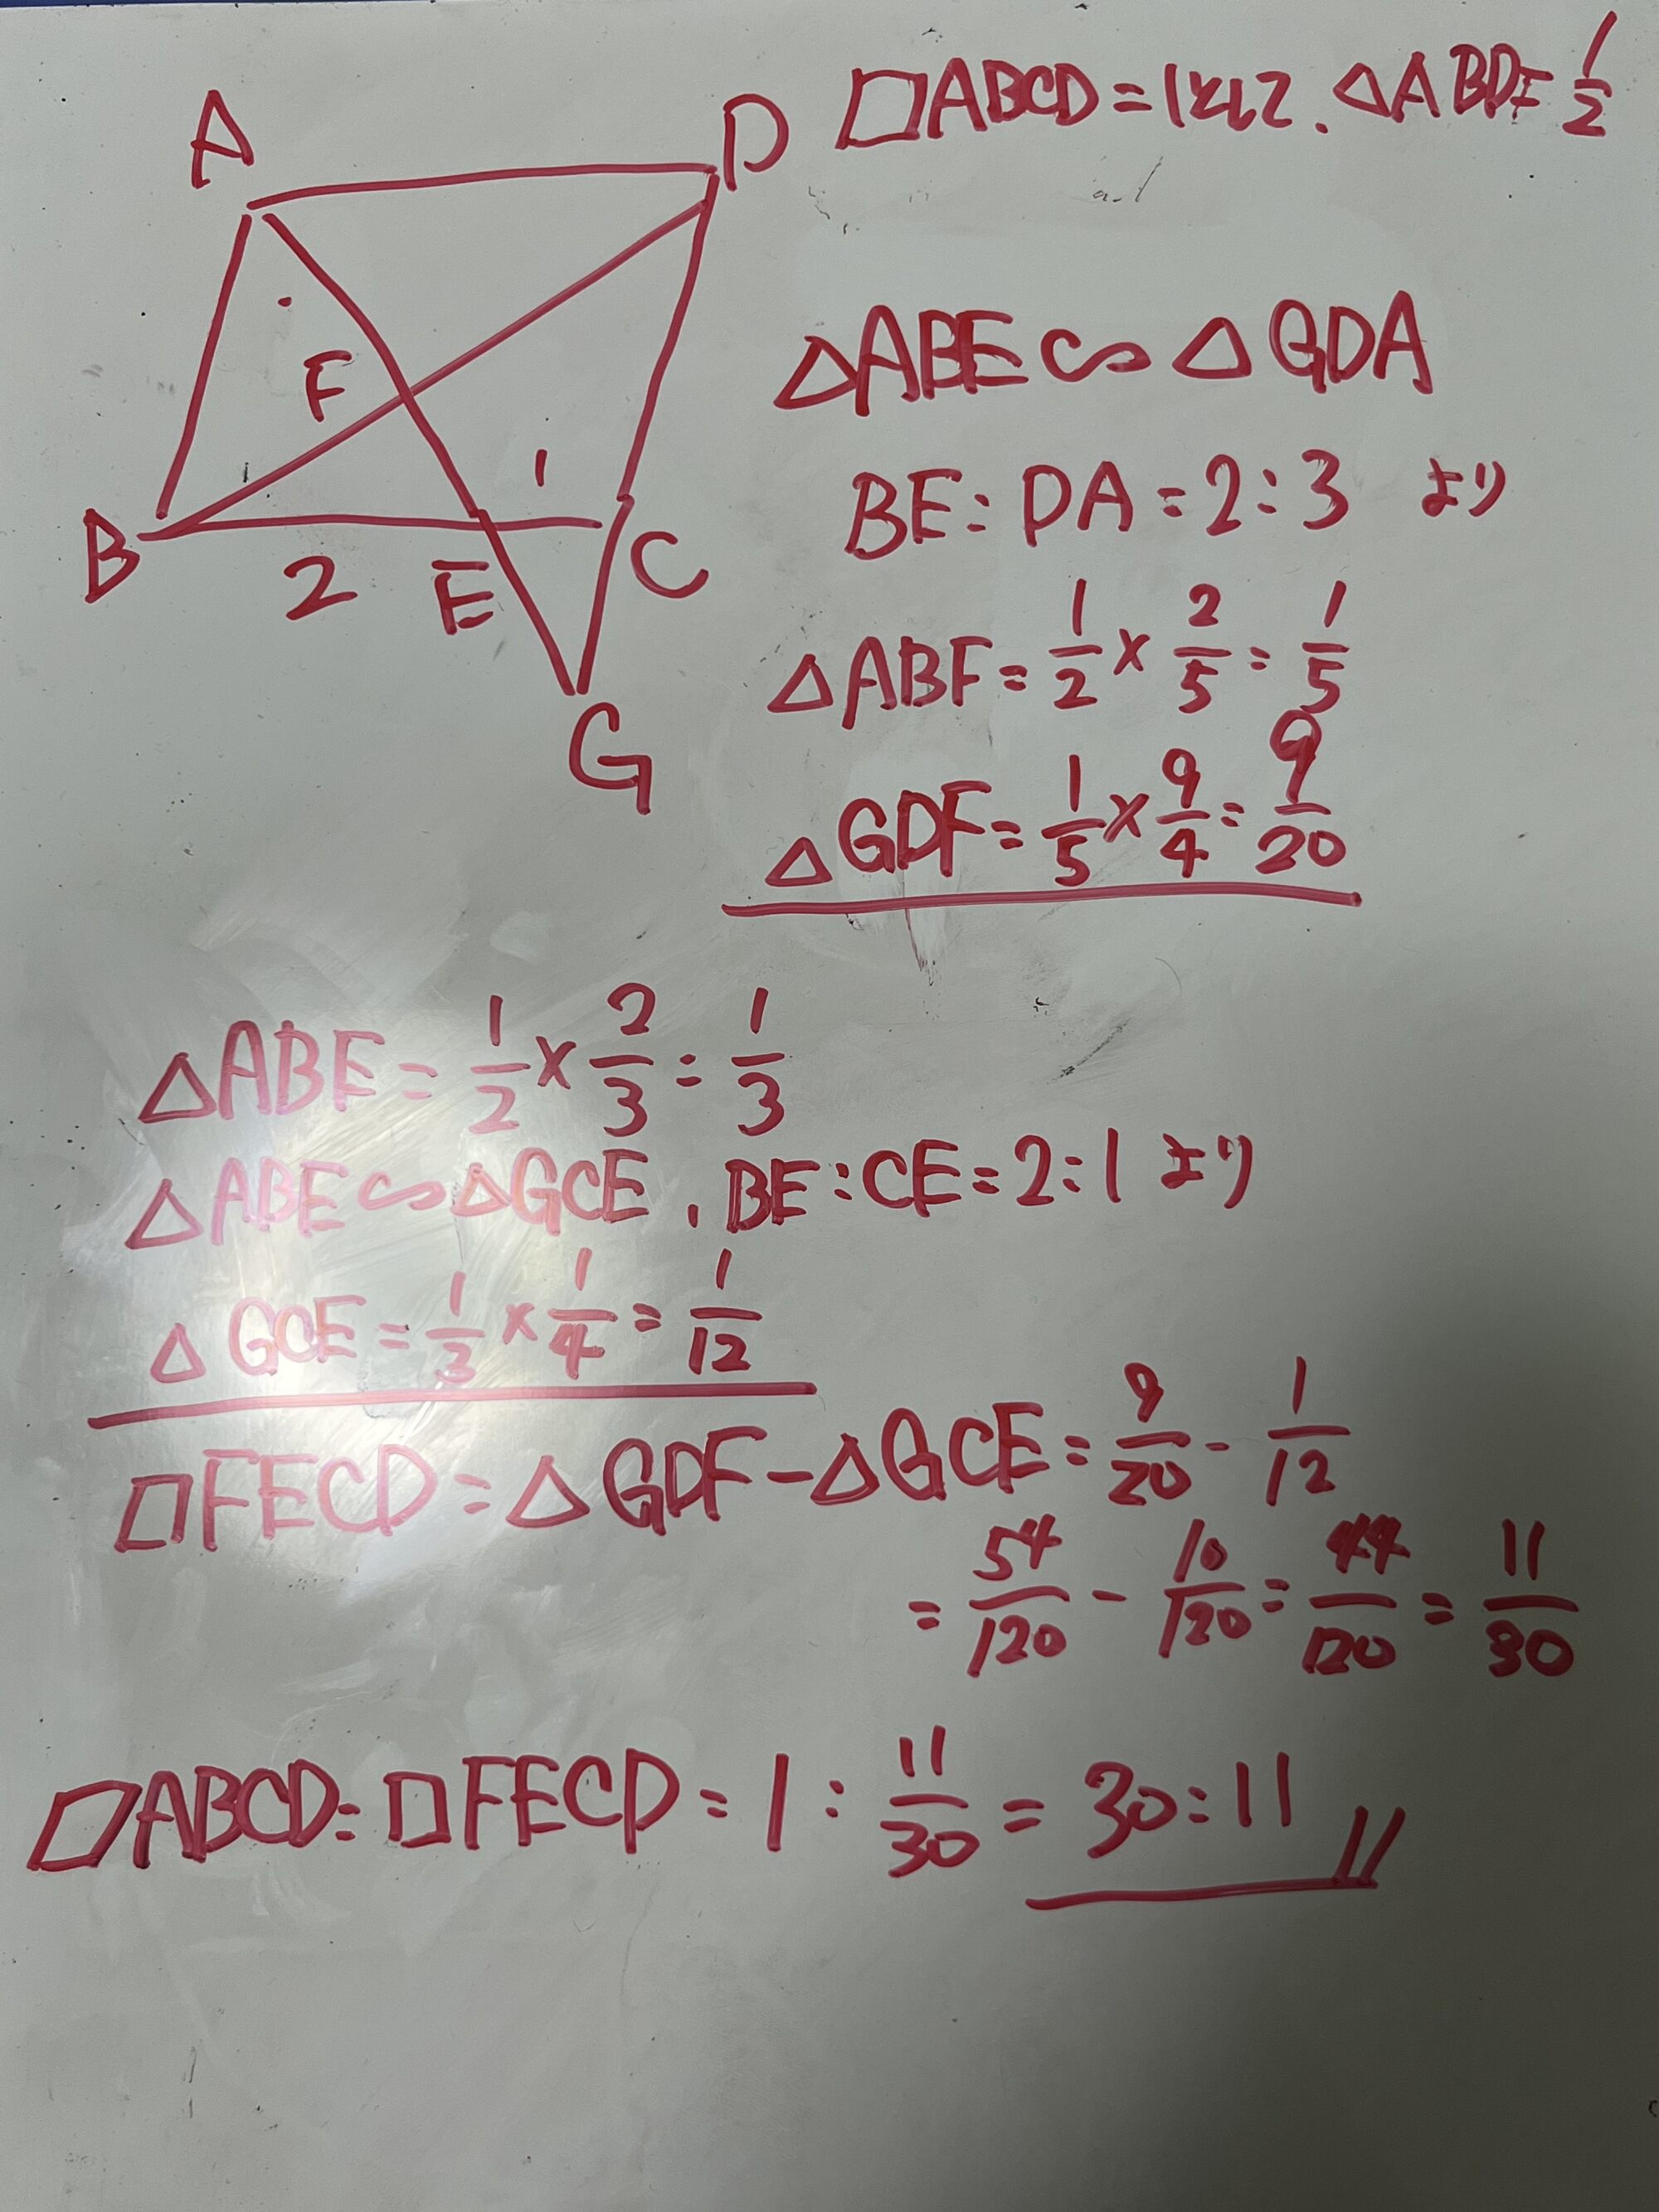 ▱ABCD=1として. △ABD=1/2
A
D
F
1
B
2
E
C
G
△ABE∽△GDA
BE:DA=2:3 より
△ABF=1/2×2/5=1/5
△GDF=1/5×9/4=9/20
△ABE=1/2×2/3=1/3
△ABE∽△GCE, BE:CE=2:1より
△GCE=1/3×1/4=1/12
□FECD=△GDF-△GCE=9/20-1/12
=54/120-10/120=44/120=11/30
▱ABCD:□FECD=1:11/30=30:11